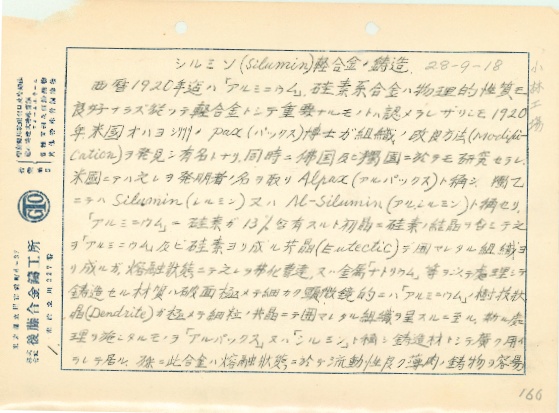 シルミン(Silumin)軽合金ノ鋳造. 28-9-18
小林工場
西暦1920年迄ハ「アルミニウム」硅素系合金ハ物理的性質モ
良好ナラズ従ツテ軽合金トシテ重要ナルモノトハ認メラレザリシモ1920
年米國オハヨ洲ノpax(パックス)博士ガ組織ノ改良方法(modifi-
cation)ヲ発見シ有名トナリ,同時ニ佛国及ビ獨国ニ於テモ研究セラレ,
米國ニテハ之レヲ発明者ノ名ヲ取リAlpax(アルパックス)ト稱シ,獨乙
ニテハSilumin(シルミン)又ハAl-Silumin(アルシルミン)ト稱セリ,
「アルミニウム」ニ硅素ガ13%含有スルト初晶ニ硅素ノ結晶ヲ
ヲ「アルミニウム」及ビ硅素ヨリ成ル共晶(Eutectic)デ囲マレタル組織ヨ
リ成ルガ,熔融状態ニテ之レヲ弗化曹達,又ハ金属「ナトリウム」等ヲ以テ處理シテ
鋳造セル材質ハ破面極メテ細カク顕微鏡的ニハ「アルミニウム」ノ樹枝状
晶(Dendrite)ガ極メテ細粒ノ共晶ニテ囲マレタル組織ヲ呈スルニ至ル,斯ル處
理ヲ施こタルモノヲ「アルパックス」又ハ「シルミン」ト稱シ鋳造材トシテ廣ク用イ
ラレテ居ル,殊ニ此合金ハ熔融状態ニ於テ流動性良ク薄肉ノ鋳物ヲ容易
166
GTO
株式会社 後藤合金鋳工所